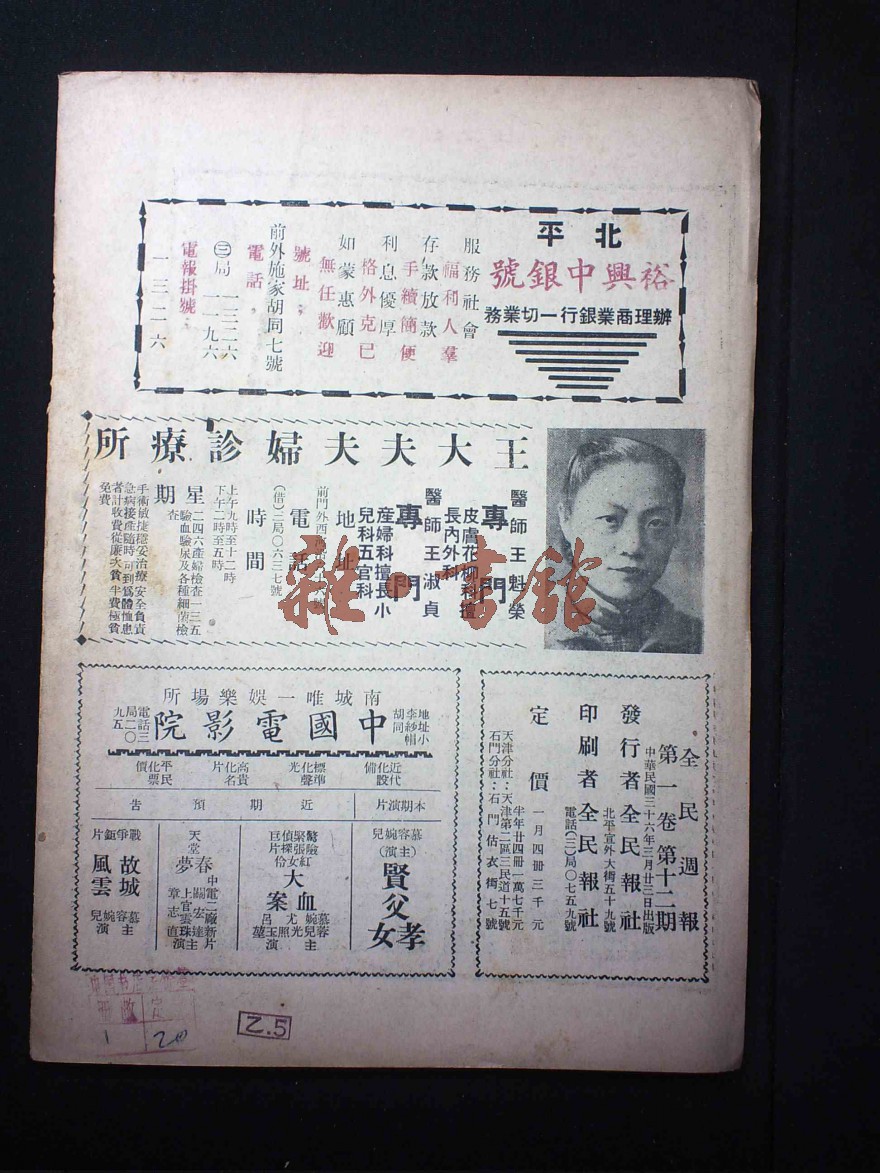 北平
裕興中銀號
辦理商業銀行一切業務
服務社會
福利人羣
存款放款
手續簡便
利息優厚
格外克已
如蒙惠顧
無任歡迎
號址：
前外施家胡同七號
電話：
㊂局 一三二六
一一九六
電報掛號：
一三二六
王大夫夫婦診療所
醫師王魁榮
專門
皮膚花柳科擅
長內外科
醫師王淑貞
專門
產婦科擅長小
兒科五官科
地址
前門外西
電話
(借)三局〇六三七號
時間
上午九時至十二時
下午二時至五時
星期
二四六產婦檢查一三五
驗血驗尿及各種細菌檢
查
手術敏捷穩妥治療安全負責
急病接產隨時可到為體恤患
者計收費從廉次貧半費極貧
免費
全民週報
第一卷第十二期
中華民國三十六年三月廿三日出版
發行者全民報社
北平宣外大街五十九號
印刷者全民報社
電話(三)局〇七五九號
定價
一月四冊三千元
半年廿四冊一萬七千元
天津分社：天津第二區三民道十五號
石門分社：石門估衣街七號
南城唯一娛樂場所
中國電影院
地址小
李紗帽
胡同
電話三
局二〇
九五
近代化設備
標準化光聲
高貴化名片
平民化票價
本期演片
近期預告
慕容婉兒
(主演)
賢父孝女
驚險緊張偵探
紅女伶
巨片
大血案
慕容婉兒
尤光照
呂玉堃
主演
天堂春夢
中電二廠新片
關宏達
上官雲珠
章志直
主演
戰爭鉅片
故城風雲
慕容婉兒主演
雜·書館
Z.5
1
20